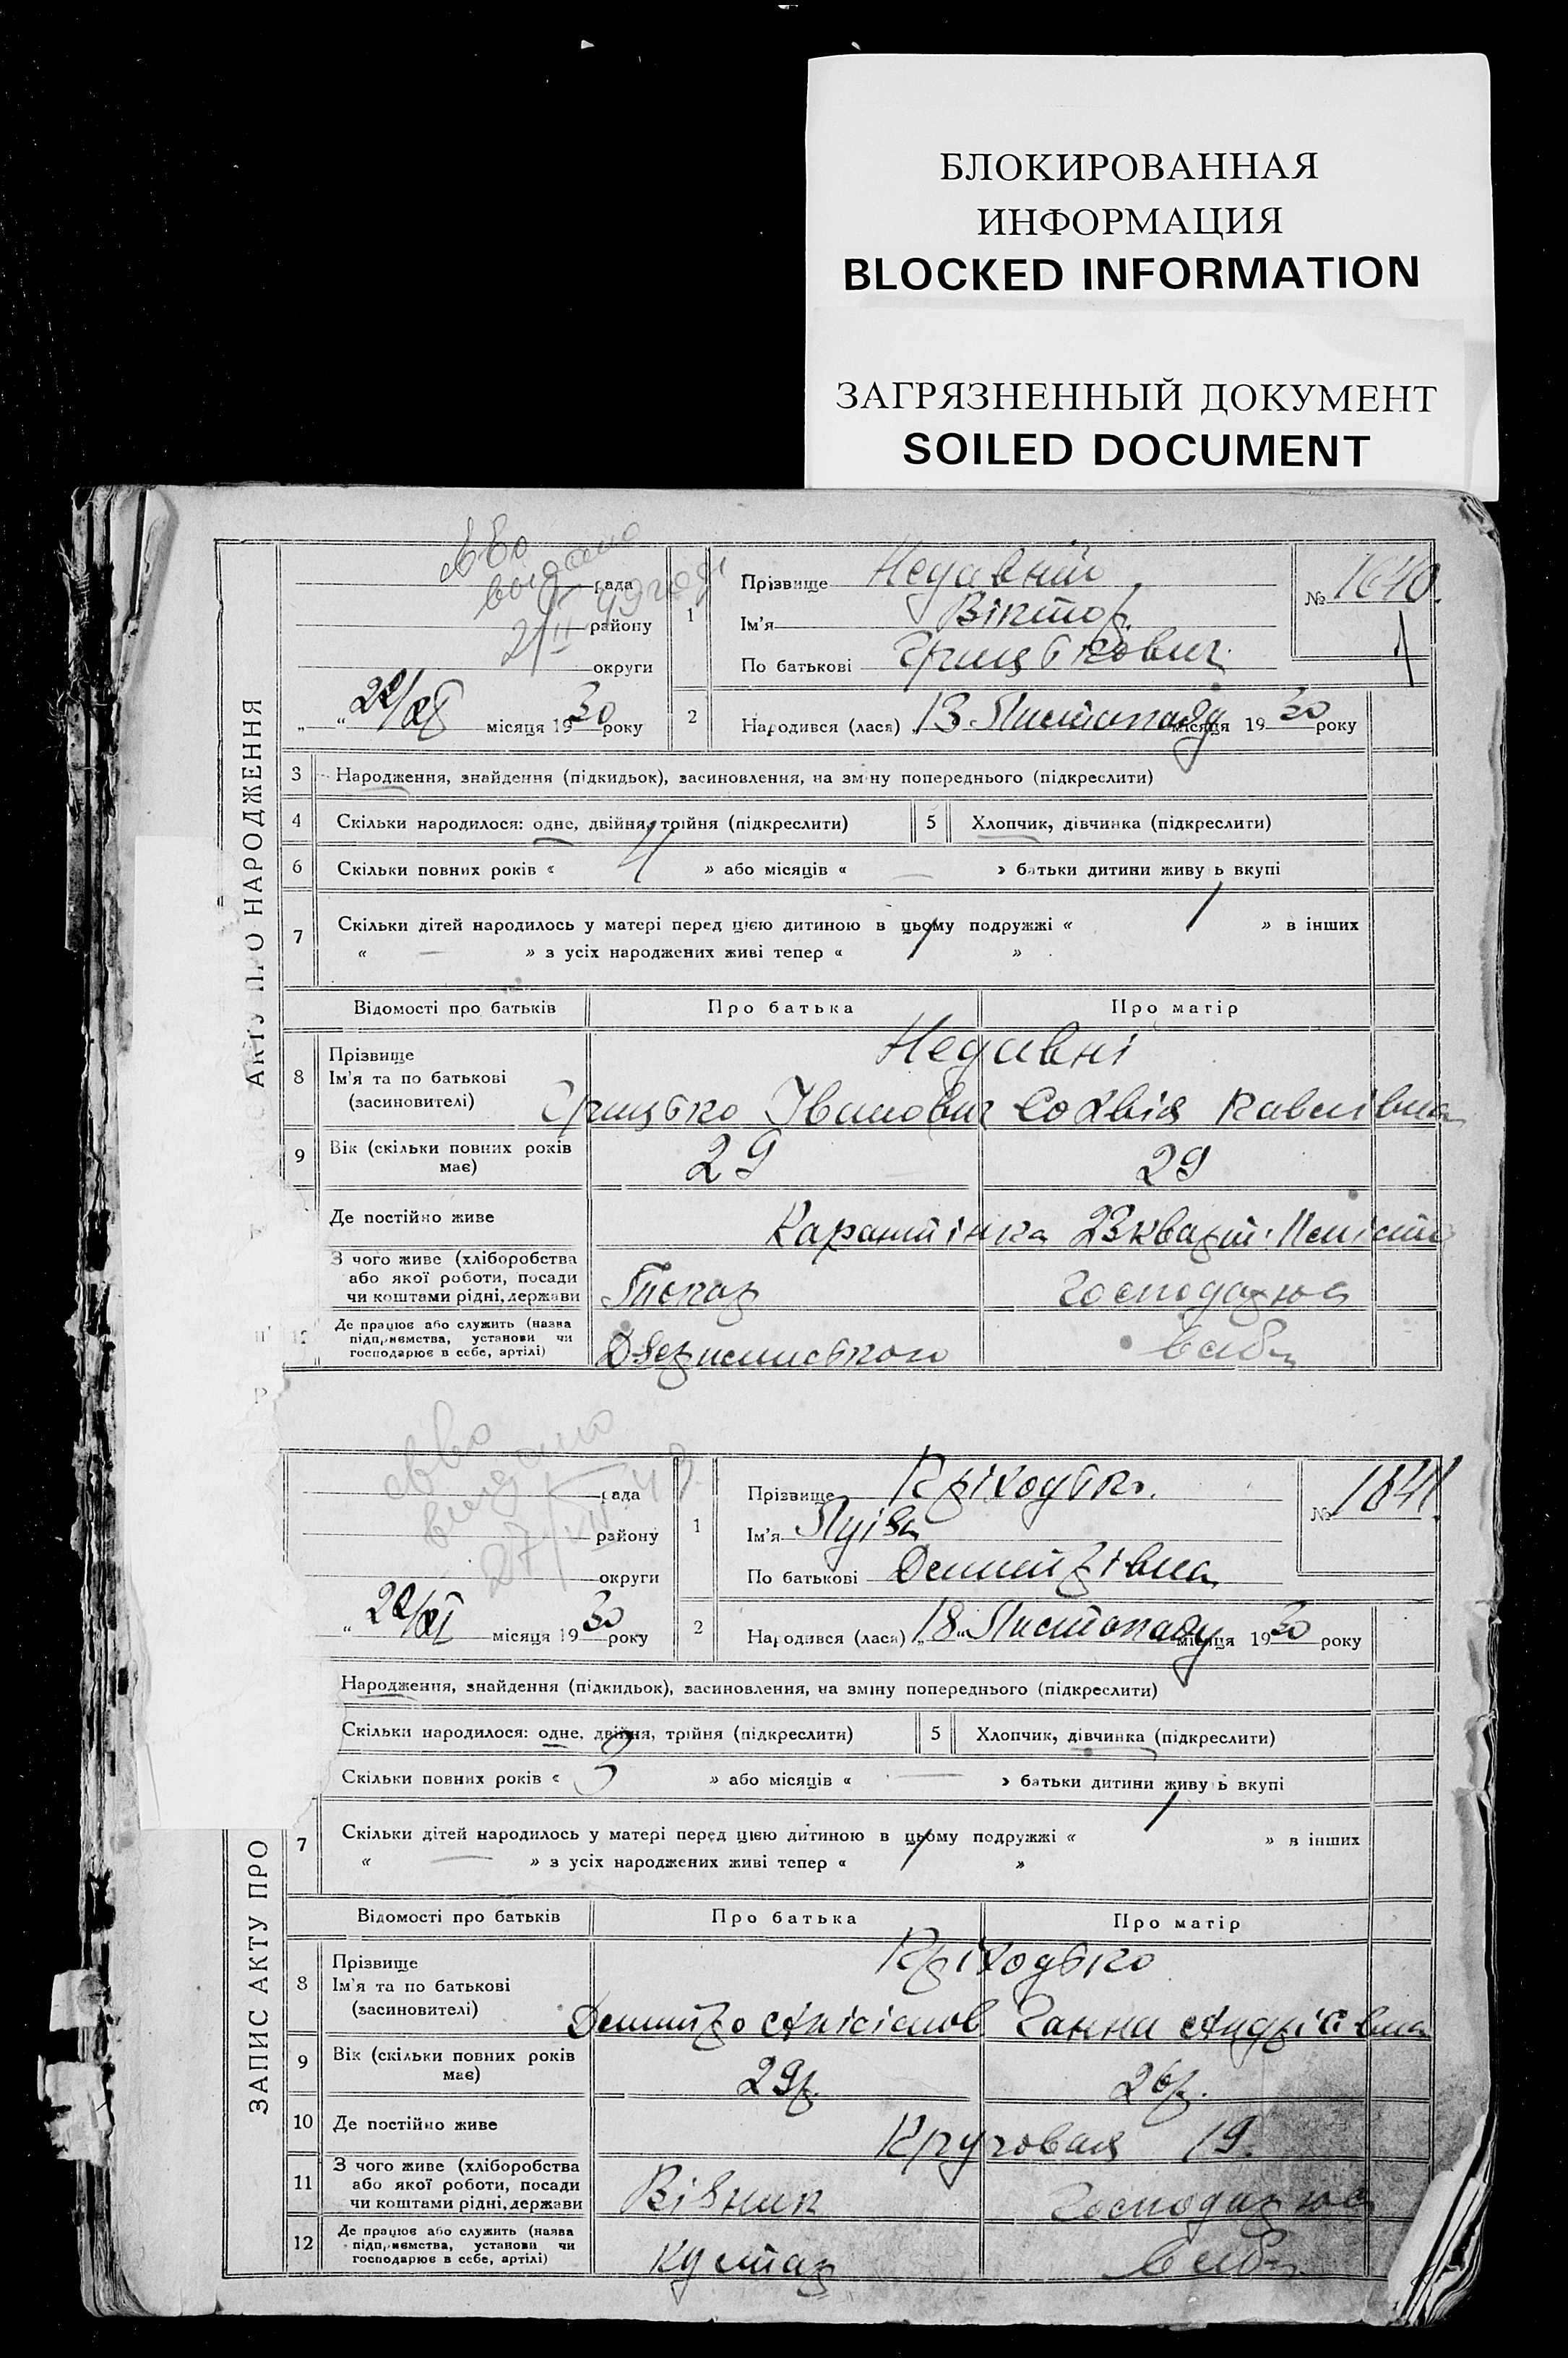 БЛОКИРОВАННАЯ
ИНФОРМАЦИЯ
BLOCKED INFORMATION
ЗАГРЯЗНЕННЫЙ ДОКУМЕНТ
SOILED DOCUMENT
АКТУ ПРО НАРОДЖЕННЯ
рада
району
округи
„ “ місяця 1930 року
1
Прізвище Недавній
Ім'я Віктор.
По батькові Грицькович.
№ 1640.
2
Народився (лася) „13 Листопаду місяця 1930 року
3 Народження, знайдення (підкидьок), засиновлення, на зміну попереднього (підкреслити)
4 Скільки народилося: одне, двійня, трійня (підкреслити)
5 Хлопчик, дівчинка (підкреслити)
6 Скільки повних років « 4 » або місяців « — » батьки дитини живуть вкупі
7 Скільки дітей народилось у матері перед цією дитиною в цьому подружжі « 1 » в інших
« — » з усіх народжених живі тепер « 1 » .
Відомості про батьків Про батька Про матір
8 Прізвище Недавні
Ім'я та по батькові
(засиновителі) Грицько Іванович
9 Вік (скільки повних років має) 29 29
Де постійно живе Карантінка 23
З чого живе (хліборобства або якої роботи, посади чи коштами рідні, держави Токар Господарює
12 Де працює або служить (назва підприємства, установи чи господарює в себе, артілі) Дзержинського в себе
ЗАПИС АКТУ ПРО
рада
району
округи
“ місяця 1930 року
1
Прізвище Пріходько.
Ім'я Луіза
По батькові Дмитрівна
№ 1641.
2
Народився (лася) „18“ Листопаду місяця 1930 року
Народження, знайдення (підкидьок), засиновлення, на зміну попереднього (підкреслити)
Скільки народилося: одне, двійня, трійня (підкреслити)
5 Хлопчик, дівчинка (підкреслити)
Скільки повних років « » або місяців « — » батьки дитини живуть вкупі
7 Скільки дітей народилось у матері перед цією дитиною в цьому подружжі « 1 » в інших
« — » з усіх народжених живі тепер « 1 »
Відомості про батьків Про батька Про матір
8 Прізвище Пріходько
Ім'я та по батькові
(засиновителі) Дмитро Ганна Андріївна
9 Вік (скільки повних років має) 29р. 26р.
10 Де постійно живе Круговая 19.
11 З чого живе (хліборобства або якої роботи, посади чи коштами рідні, держави Візник Господарює
12 Де працює або служить (назва підприємства, установи чи господарює в себе, артілі) кустар в себе